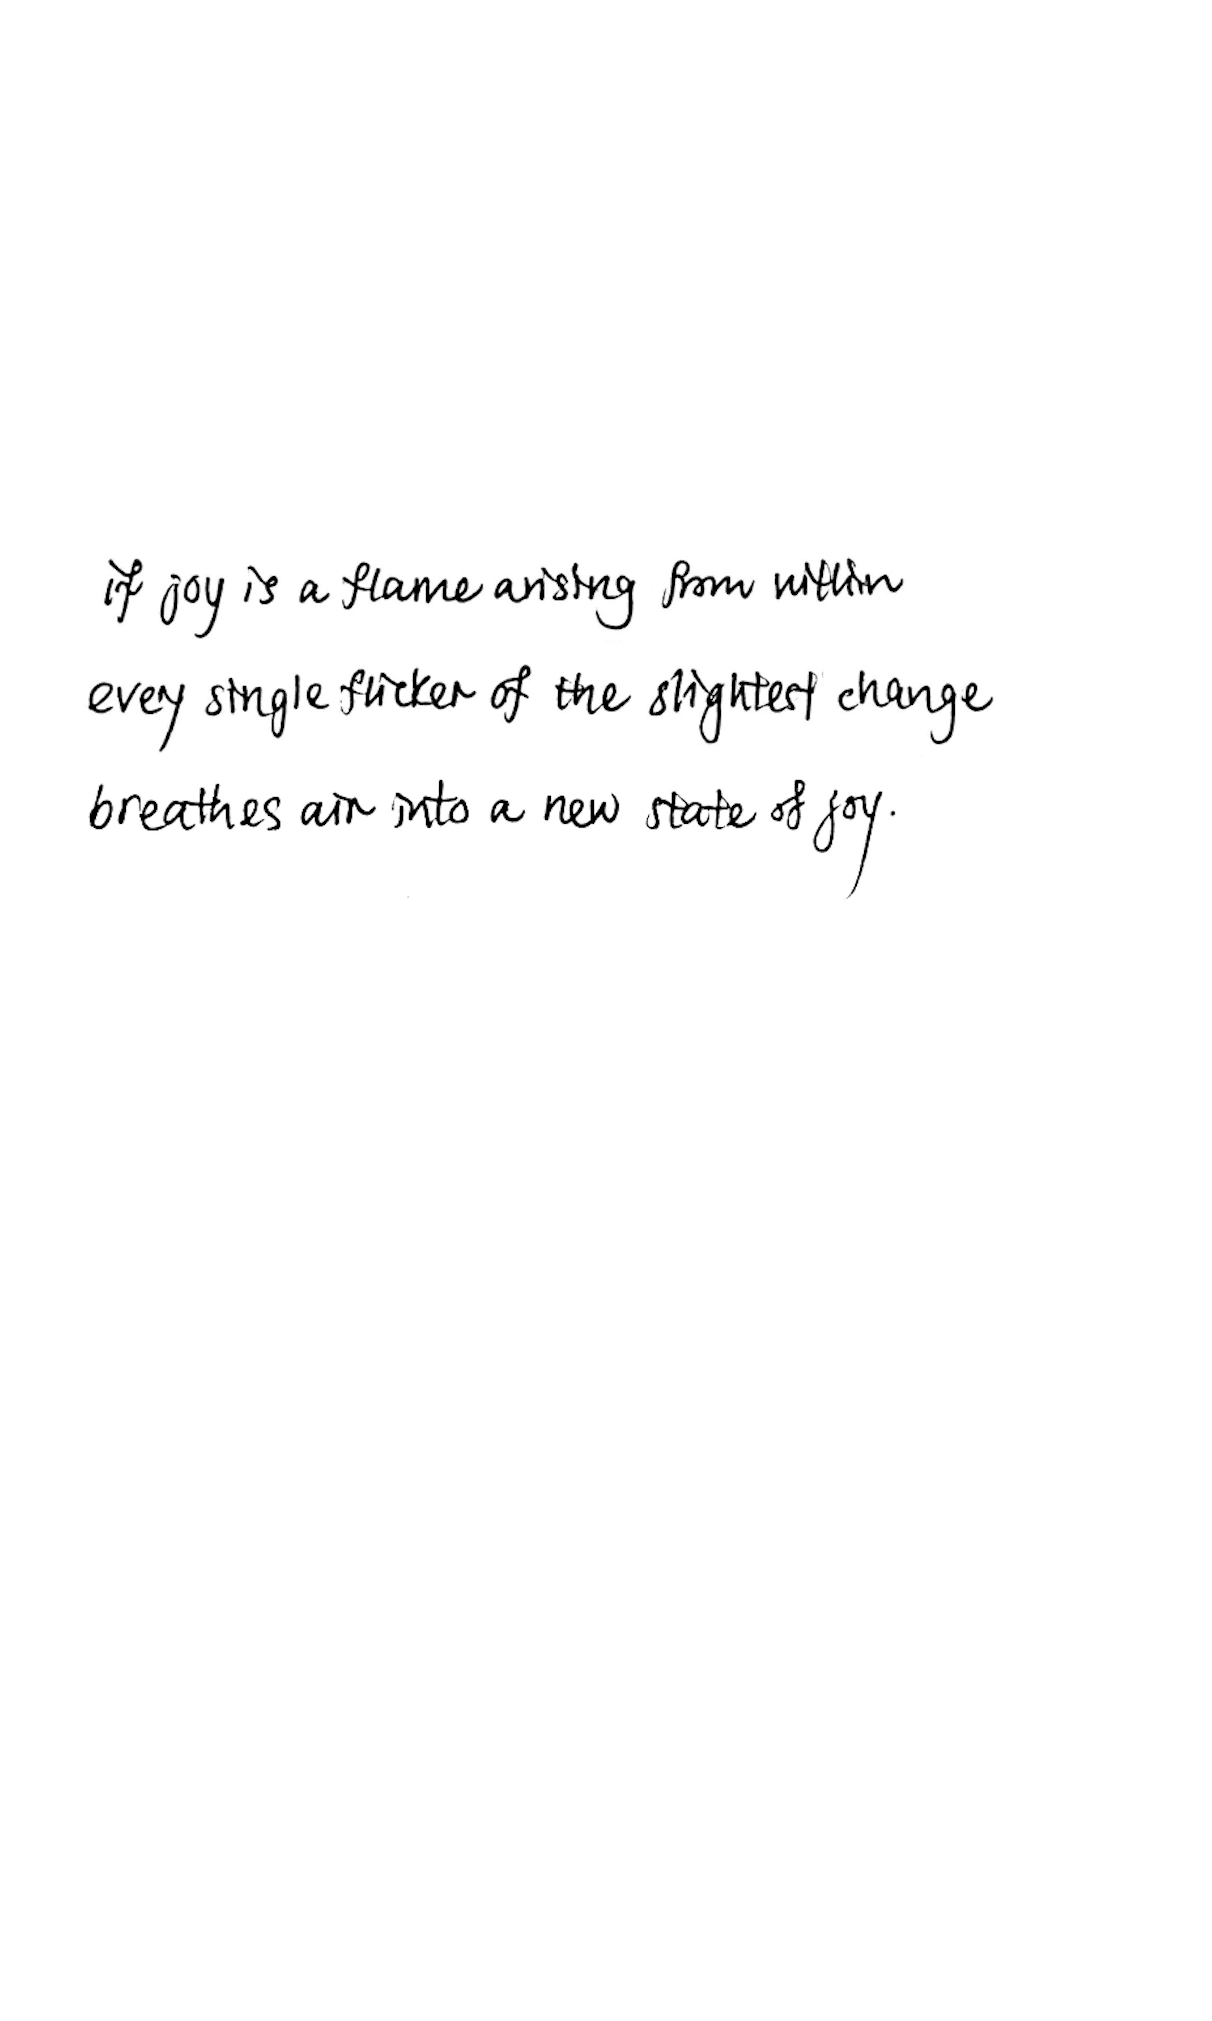 if joy is a flame arising from within
evey single flicker of the slightest change
breathes air into a new state of joy.